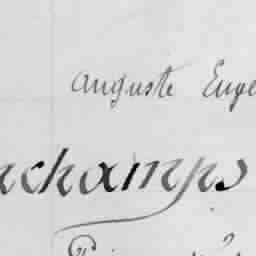 Auguste Euge
nchamps